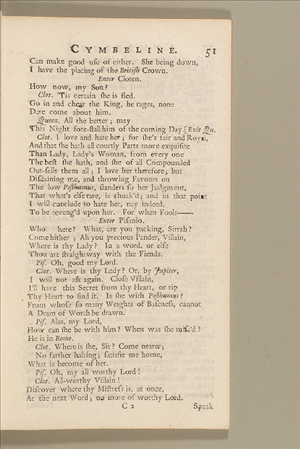 CYMBELINE. 51
Can make good use of either. She being down,
I have the placing of the British Crown.
Enter Cloten.
How now, my Son?
Clot. 'Tis certain she is fled.
Go in and chear the King, he rages, none
Dare come about him.
Queen. All the better; may
This Night fore-stall him of the coming Day. [Exit Qu.
Clot. I love and hate her; for she's fair and Royal,
And that she hath all courtly Parts more exquisite
Than Lady, Lady's Woman, from every one
The best she hath, and she of all Compounded
Out-sells them all; I love her therefore; but
Disdaining me, and throwing Favours on
The low Posthumus, slanders so her Judgment,
That what's else rare, is choak'd; and in that point
I will conclude to hate her, nay indeed,
To be reveng'd upon her. For when Fools——
Enter Pisanio.
Who is here? What, are you packing, Sirrah?
Come hither; Ah you precious Pander, Villain,
Where is thy Lady? In a word, or else
Thou art straightway with the Fiends.
Pis. Oh, good my Lord.
Clot. Where is thy Lady? Or, by Jupiter,
I will not ask again. Close Villain,
I'll have this Secret from thy Heart, or rip
Thy Heart to find it. Is she with Posthumus?
From whose so many Weights of Baseness, cannot
A Dram of Worth be drawn.
Pis. Alas, my Lord,
How can she be with him? When was she miss'd?
He is in Rome.
Clot. Where is she, Sir? Come nearer,
No farther halting; satisfie me home,
What is become of her.
Pis. Oh, my all worthy Lord!
Clot. All-worthy Villain!
Discover where thy Mistress is, at once,
At the next Word; no more of worthy Lord,
C 2 Speak